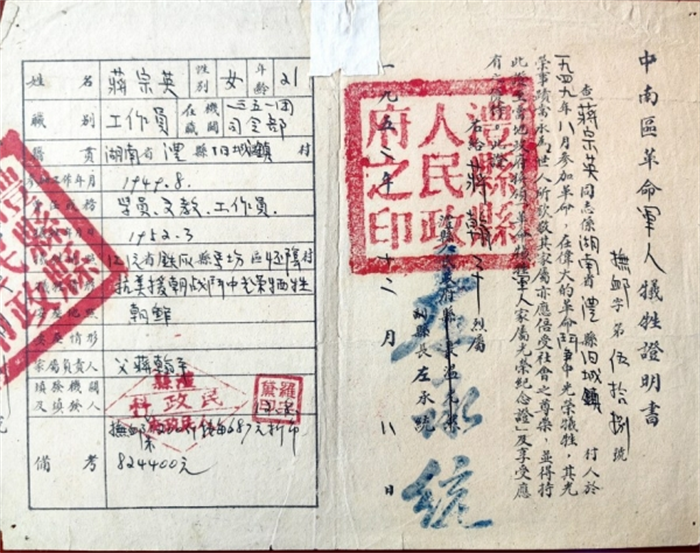 中南區革命軍人犧牲證明書
撫邮字第伍拾捌號
查蔣宗英同志係湖南省澧縣旧城鎮村人於
一九四九年八月参加革命，在偉大的革命鬥争中光荣犧牲，其光
荣事蹟當永為世人所欽敬其家属亦應倍受社會之尊崇，並得持
此證向當地政府换領「革命犧牲軍人家屬光荣紀念證」及享受應
有之優待。此證
右給蔣翰千烈属
澧縣人民政府縣長
副縣長左承統
左承统
一九五二年十二月八日
澧縣縣人民政府之印
姓名 蔣宗英 性别 女 年齡 21
職别 工作員 在職機關 三五一团司令部
籍貫 湖南省澧縣旧城鎮村
参加工作年月 1949.8.
学員、文教、工作員.
1952.3
抗美援朝战鬥中光荣牺牲
朝鮮
家屬負責人 父蔣翰千
填發機關及填發人
澧縣民政科
羅黨
備考
824400元